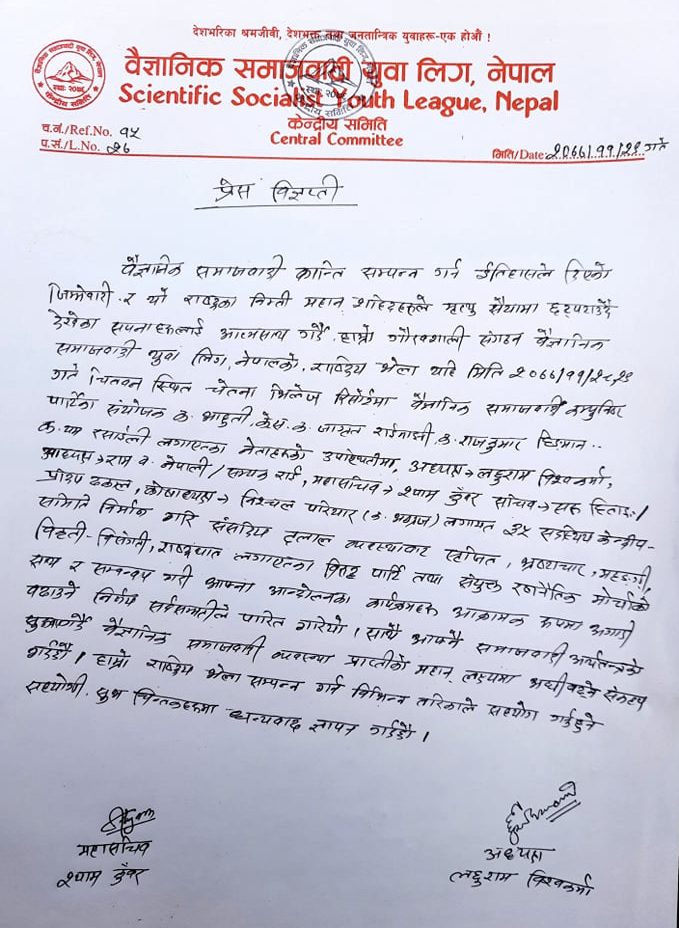 देशभरिका श्रमजीवी, देशभक्त तथा जनतान्त्रिक युवाहरू-एक होऔं !
वैज्ञानिक समाजवादी युवा लिग, नेपाल
Scientific Socialist Youth League, Nepal
केन्द्रीय समिति
Central Committee
च.नं./Ref.No. १५
प.सं./L.No. २६
मिति/Date: २०७७/११/२९ गते
प्रेस विज्ञप्ती
वैज्ञानिक समाजवादी क्रान्ति सम्पन्न गर्न ईतिहासले दिएको
जिम्मेवारी र यो राष्ट्रका निम्ती महान शहिदहरूले मृत्यु सैयामा छट्पटाउँदै
देखेका सपनाहरूलाई आत्मसाथ गर्दै, हाम्रो गौरवशाली संगठन वैज्ञानिक
समाजवादी युवा लिग, नेपालको, राष्ट्रिय भेला यहि मिति २०७७/११/२८,२९
गते चितवन स्थित चेतना भिलेज रिसोर्टमा वैज्ञानिक समाजवादी कम्युनिष्ट
पार्टीका संयोजक क. आहुती, केस. क. जागृत राईमाझी, क. राजकुमार
क. यम रसाईली लगाएतका नेताहरूको उपस्थितीमा, अध्यक्ष → लछुराम विश्वकर्मा,
उपाध्यक्ष → राम व. नेपाली / सम्यक राई, महासचिव → श्याम कुँवर सचिव →
प्रदिप ढकाल, कोषाध्यक्ष → निश्चल परियार लगायत ३५ सदस्यीय केन्द्रीय-
समिति निर्माण गरि संसदिय दलाल व्यवस्थाबाट सृजित, भ्रष्टाचार, महङ्गी,
विकृती-विसंगती, राष्ट्रघात लगाएतका विरुद्ध पार्टि तथा संयुक्त राजनैतिक मोर्चाको
साथ र समन्वय गरी आफ्ना आन्दोलनका कार्यक्रमहरू आक्रामक रूपमा अगाडी
बढाउने निर्णय सर्वसम्मतीले पारित गरियो। साथै आफ्नै समाजवादी अर्थतन्त्रको
वैज्ञानिक समाजवादी व्यवस्था प्राप्तीको महान् लक्ष्यमा अघी बढ्ने संकल्प
गर्दछौं। हाम्रो राष्ट्रिय भेला सम्पन्न गर्न विभिन्न तरिकाले सहयोग गर्नुहुने
सहयोगी, शुभ चिन्तकहरूमा धन्यवाद ज्ञापन गर्दछौं।
महासचिव
श्याम कुँवर
अध्यक्ष
लछुराम विश्वकर्मा